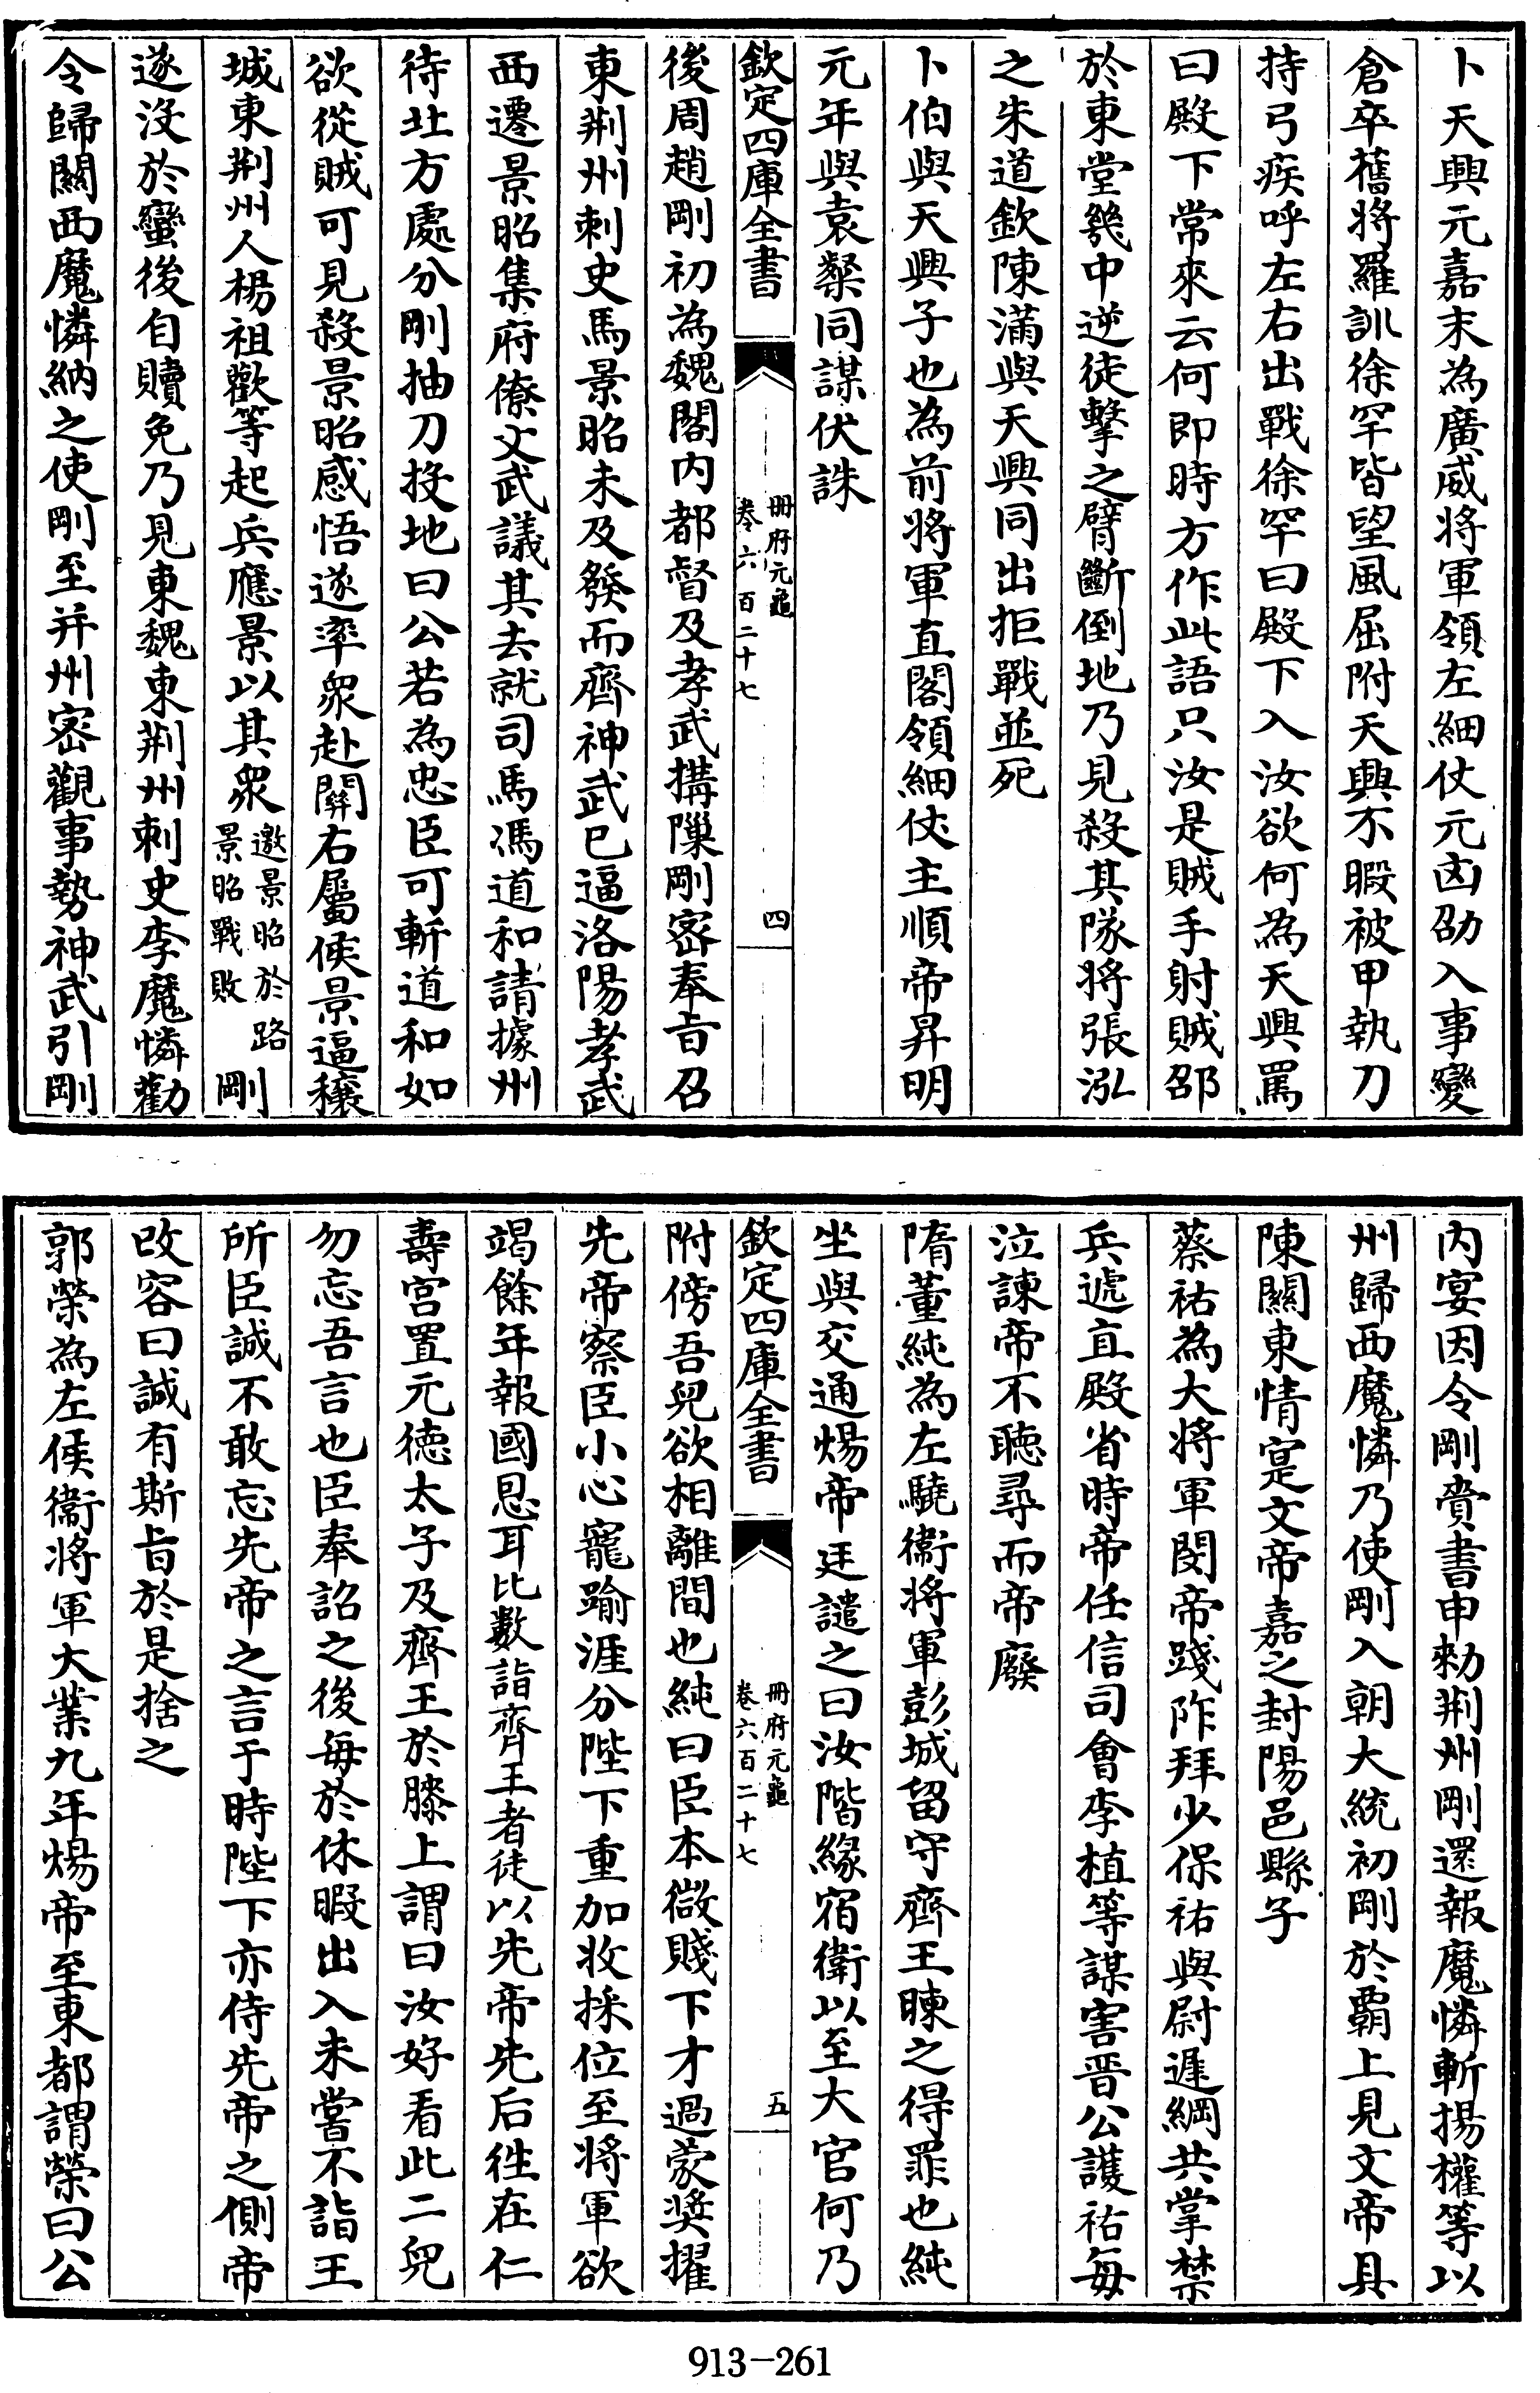 卜天興元嘉末為廣威將軍領左細仗元凶劭入事變
倉卒舊將羅訓徐罕皆望風屈附天興不暇被甲執刀
持弓疾呼左右出戰徐罕曰殿下入汝欲何為天興罵
曰殿下常來云何即時方作此語只汝是賊手射賊邵
於東堂幾中逆徒擊之臂斷倒地乃見殺其隊將張泓
之朱道欽陳滿與天興同出拒戰並死
卜伯與天興子也為前將軍直閣領細仗主順帝昇明
元年與袁粲同謀伏誅
欽定四庫全書
冊府元龜
卷六百二十七
四
後周趙剛初為魏閣內都督及孝武搆隟剛密奉旨召
東荆州刺史馬景昭未及發而齊神武已逼洛陽孝武
西遷景昭集府僚文武議其去就司馬馮道和請據州
待北方處分剛抽刀投地曰公若為忠臣可斬道和如
欲從賊可見殺景昭感悟遂率衆赴關右屬侯景逼穰
城東荆州人楊祖歡等起兵應景以其衆邀景昭於路景昭戰敗剛
遂沒於蠻後自贖免乃見東魏東荆州刺史李魔憐勸
令歸關西魔憐納之使剛至并州密觀事勢神武引剛
內宴因令剛賫書申勑荆州剛還報魔憐斬揚權等以
州歸西魔憐乃使剛入朝大統初剛於覇上見文帝具
陳關東情寔文帝嘉之封陽邑縣子
蔡祐為大將軍閔帝踐阼拜少保祐與尉遲綱共掌禁
兵遞直殿省時帝任信司會李植等謀害晋公護祐每
泣諫帝不聽尋而帝廢
隋董純為左驍衞將軍彭城留守齊王暕之得罪也純
坐與交通煬帝廷譴之曰汝階緣宿衛以至大官何乃
欽定四庫全書
冊府元龜
卷六百二十七
五
附傍吾兒欲相離間也純曰臣本微賤下才過蒙奬擢
先帝察臣小心寵踰涯分陛下重加收採位至將軍欲
竭餘年報國恩耳比數詣齊王者徒以先帝先后徃在仁
壽宮置元德太子及齊王於膝上謂曰汝好看此二兒
勿忘吾言也臣奉詔之後每於休暇出入未嘗不詣王
所臣誠不敢忘先帝之言于時陛下亦侍先帝之側帝
改容曰誠有斯旨於是捨之
郭榮為左候衞將軍大業九年煬帝至東都謂榮曰公
913-261